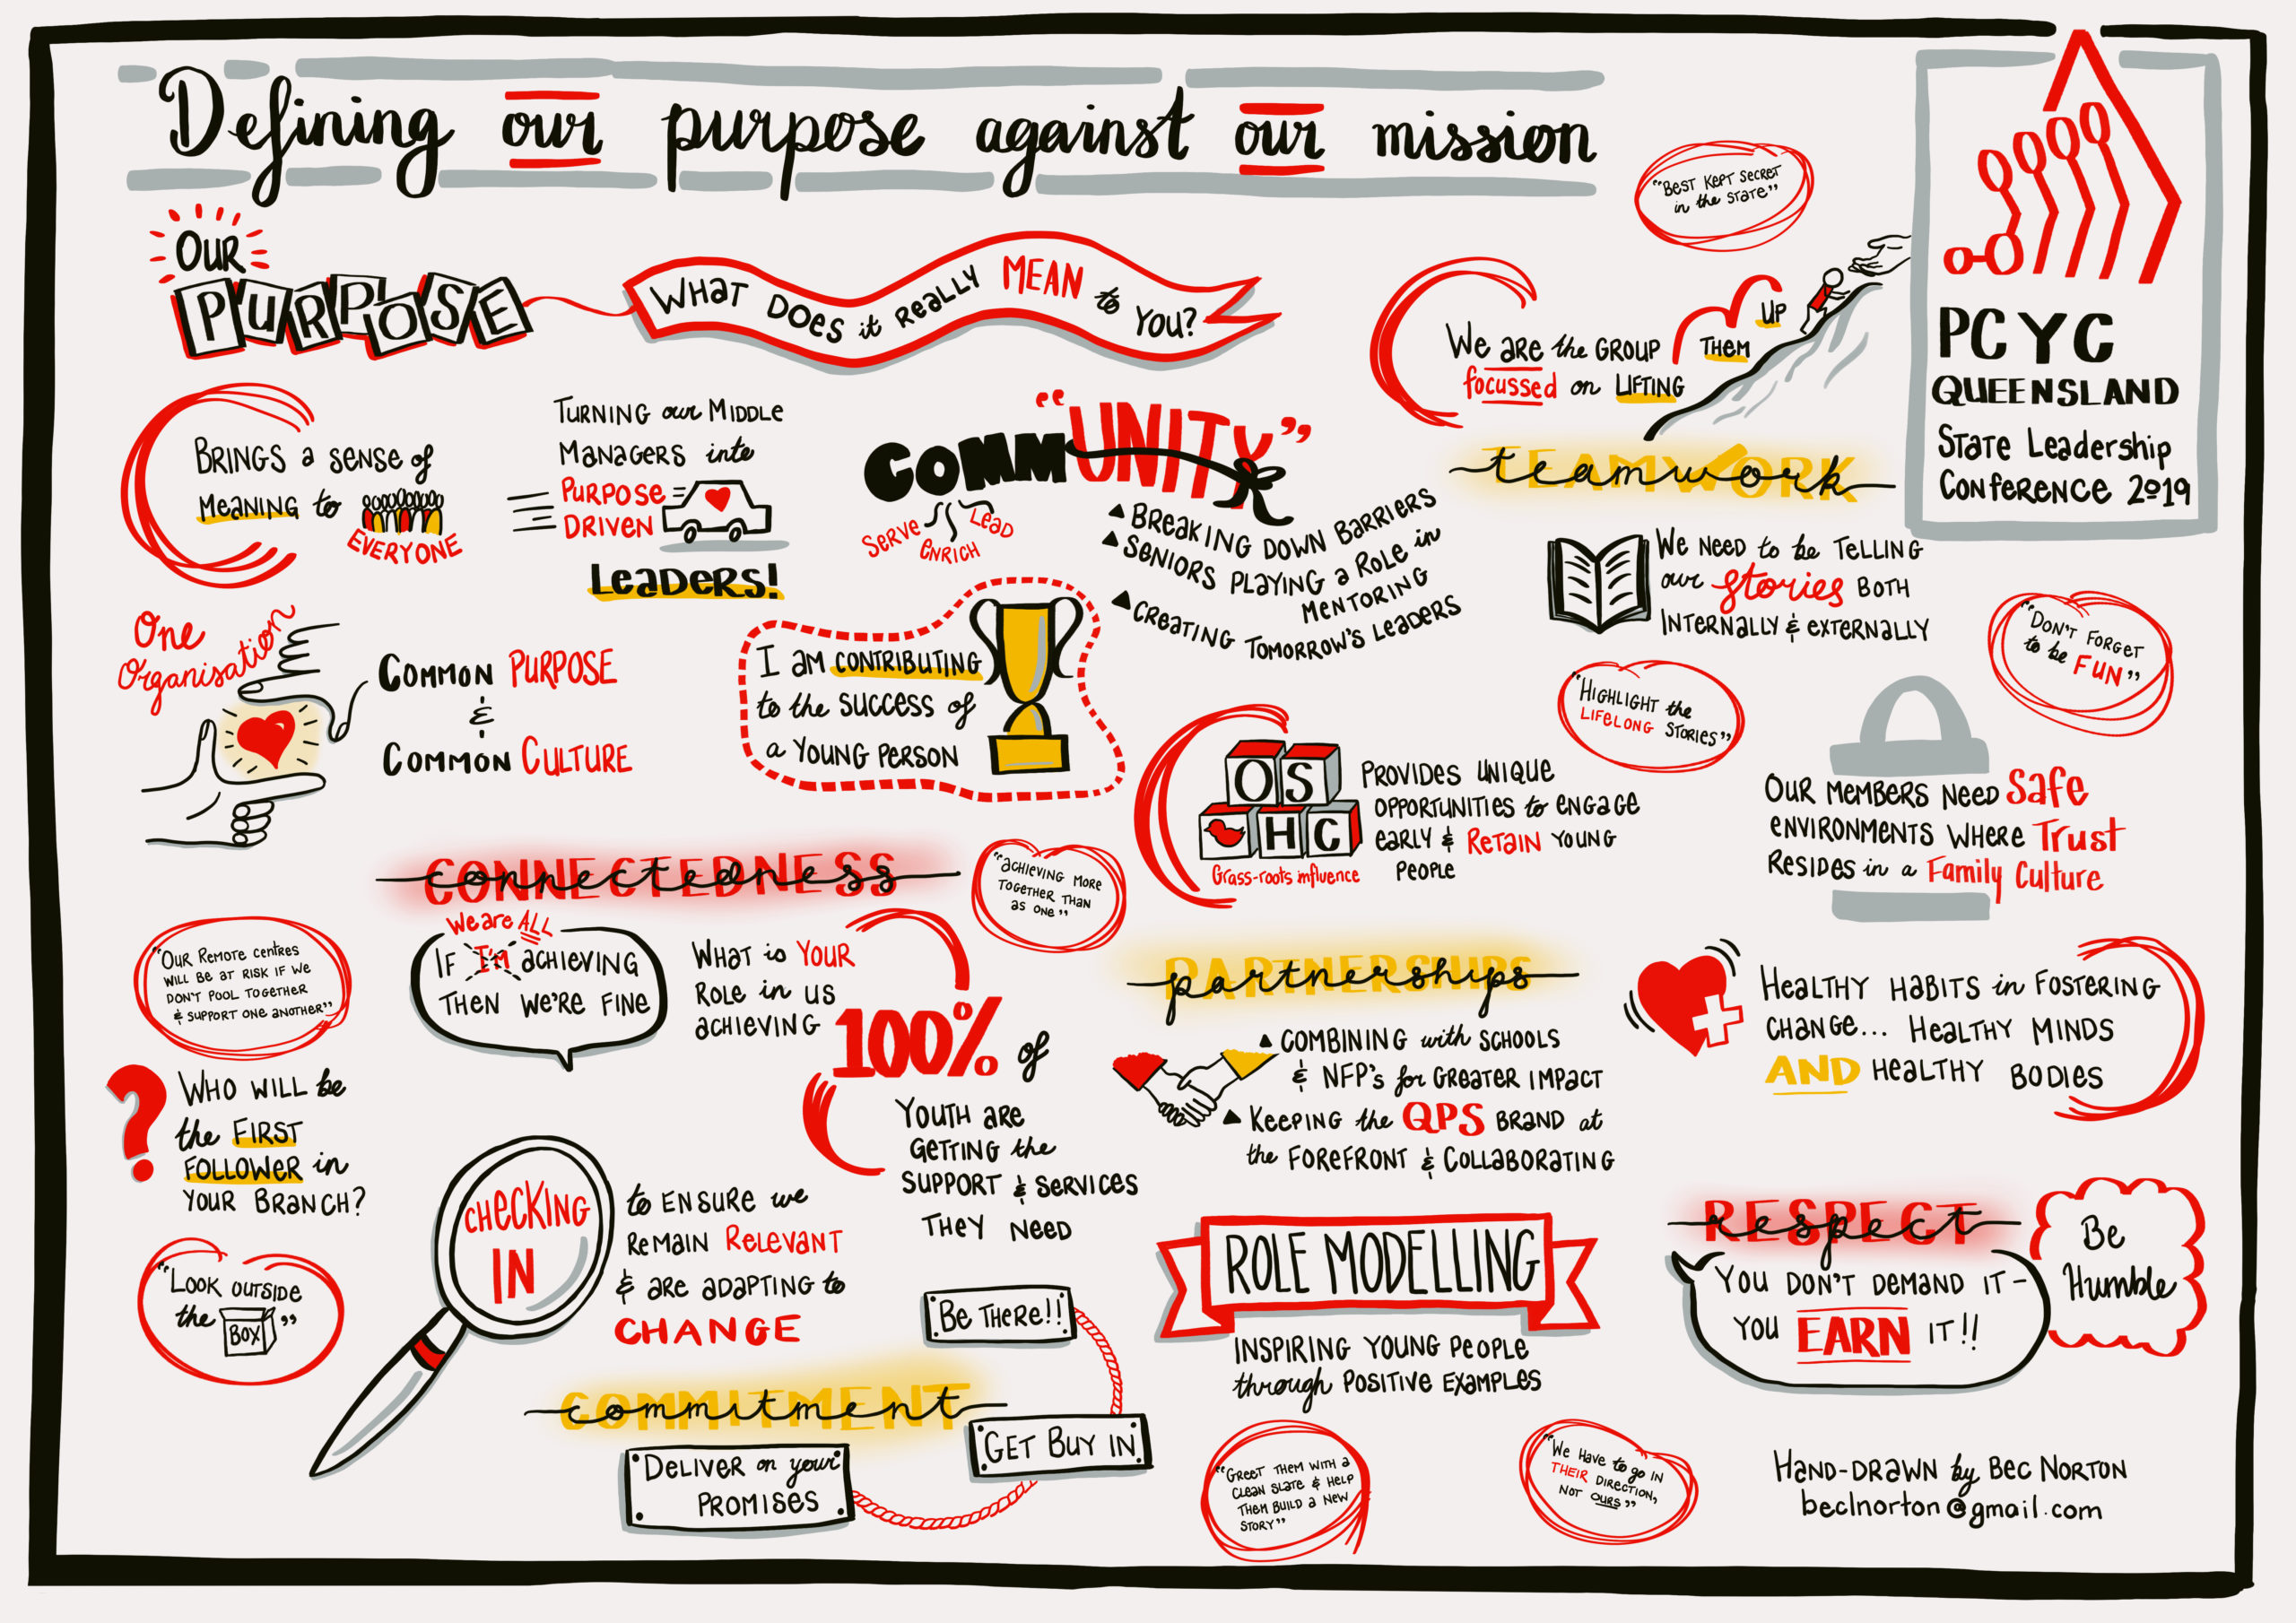 Defining our purpose against our mission
PCYC
QUEENSLAND
State Leadership
Conference 2019
OUR
PURPOSE
WHAT DOES it REALLY MEAN to YOU?
"BEST KEPT SECRET
in the STATE"
We ARE the GROUP
focussed on LIFTING
THEM
UP
BRINGS a SENSE of
MEANING to
EVERYONE
TURNING our MIDDLE
MANAGERS into
PURPOSE
DRIVEN
LEADERS!
COMM"UNITY"
SERVE
ENRICH
LEAD
BREAKING DOWN BARRIERS
SENIORS PLAYING a ROLE in
MENTORING
CREATING TOMORROW'S LEADERS
TEAMWORK
teamwork
WE NEED to be TELLING
our stories BOTH
INTERNALLY & EXTERNALLY
"DON'T FORGET
to be FUN"
"HIGHLIGHT the
LIFELONG STORIES"
One
Organisation
COMMON PURPOSE
&
COMMON CULTURE
I AM CONTRIBUTING
to the SUCCESS of
a YOUNG PERSON
OS
HC
Grass-roots influence
PROVIDES UNIQUE
OPPORTUNITIES to ENGAGE
EARLY & RETAIN YOUNG
PEOPLE
OUR MEMBERS NEED Safe
ENVIRONMENTS WHERE Trust
RESIDES in a Family Culture
CONNECTEDNESS
connectedness
"ACHIEVING MORE
TOGETHER THAN
AS ONE"
"OUR REMOTE CENTRES
WILL BE AT RISK IF WE
DON'T POOL TOGETHER
& SUPPORT ONE ANOTHER"
We are ALL
IF I'M ACHIEVING
THEN WE'RE FINE
WHAT is YOUR
ROLE in US
ACHIEVING
100% of
YOUTH ARE
GETTING the
SUPPORT & SERVICES
THEY NEED
PARTNERSHIPS
partnerships
COMBINING with SCHOOLS
& NFP's for GREATER IMPACT
KEEPING the QPS BRAND at
the FOREFRONT & COLLABORATING
HEALTHY HABITS in FOSTERING
CHANGE... HEALTHY MINDS
AND HEALTHY BODIES
? WHO WILL be
the FIRST
FOLLOWER in
YOUR BRANCH?
"LOOK OUTSIDE
the BOX"
CHECKING
IN
to ENSURE we
REMAIN RELEVANT
& ARE ADAPTING to
CHANGE
COMMITMENT
commitment
Be THERE!!
GET BUY IN
DELIVER on your
PROMISES
ROLE MODELLING
INSPIRING YOUNG PEOPLE
through POSITIVE EXAMPLES
RESPECT
respect
YOU DON'T DEMAND IT -
YOU EARN IT!!
Be
Humble
"GREET THEM WITH a
CLEAN SLATE & HELP
THEM BUILD a NEW
STORY"
"We Have to go IN
THEIR DIRECTION,
NOT OURS"
HAND-DRAWN by BEC NORTON
beclnorton@gmail.com